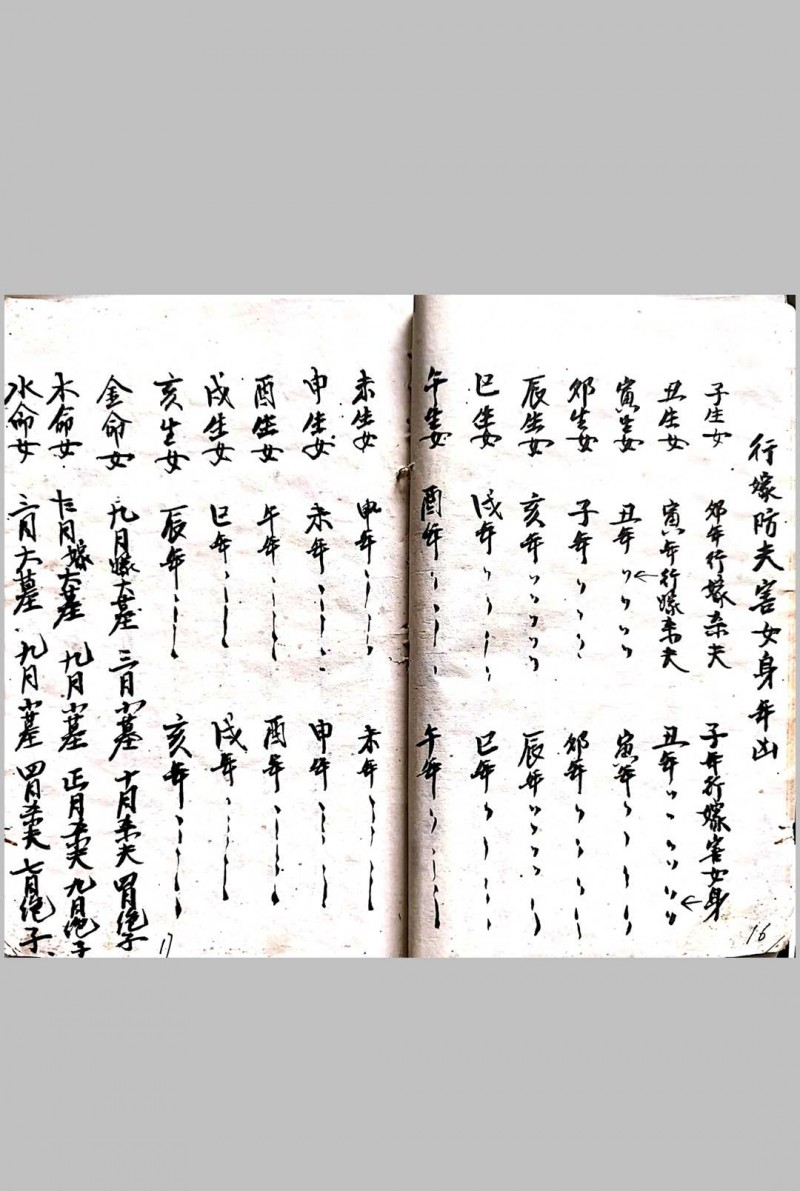 行嫁防夫害女身年凶
子生女 卯年行嫁杀夫 子年行嫁害女身
丑生女 寅年行嫁杀夫 丑年〃〃〃〃〃
寅生女 丑年〃〃〃〃 寅年〃〃〃〃〃
卯生女 子年〃〃〃〃 卯年〃〃〃〃〃
辰生女 亥年〃〃〃〃 辰年〃〃〃〃〃
巳生女 戌年〃〃〃〃 巳年〃〃〃〃〃
午生女 酉年〃〃〃〃 午年〃〃〃〃〃
16
未生女 申年〃〃〃〃 未年〃〃〃〃〃
申生女 未年〃〃〃〃 申年〃〃〃〃〃
酉生女 午年〃〃〃〃 酉年〃〃〃〃〃
戌生女 巳年〃〃〃〃 戌年〃〃〃〃〃
亥生女 辰年〃〃〃〃 亥年〃〃〃〃〃
金命女 九月嫁大墓 三月小墓 十月杀夫 四月绝子
木命女 十二月嫁大墓 九月小墓 正月杀夫 九月绝子
水命女 三月大墓 九月小墓 四月杀夫 七月绝子
17